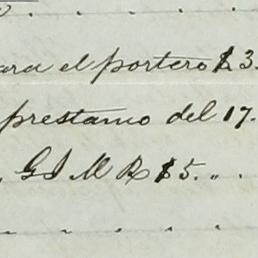 ara el portero $3.
prestamo del 17.
G I M R $5. „ .